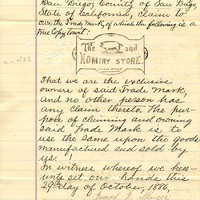 San Diego, County of San Diego,
State of California, claim to
own the Trade Mark, of which the following is a
true Copy to wit:
The and
HOMINY STORE.
That we are the exclusive
owners of said Trade Mark,
and no other person has
any claim thereto. The pur-
pose of claiming and owning
said Trade Mark is to
use the same upon the goods
manufactured and sold by
us;
In witness whereof we here-
unto set our hands this
29th day of October, 1886,